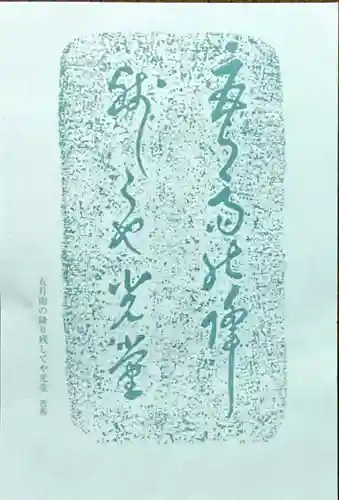 五月雨の降
残してや光堂
五月雨の降り残してや光堂 芭蕉